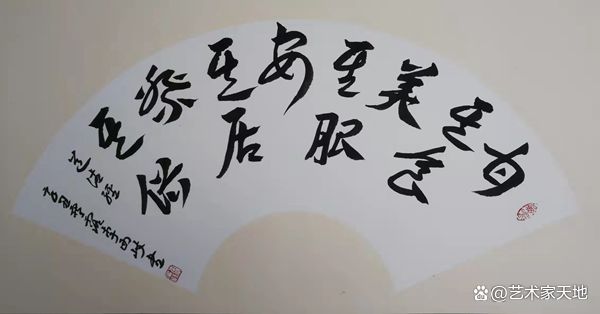 甘
其食
美
其服
安
其居
樂
其俗
道德經
@艺术家天地